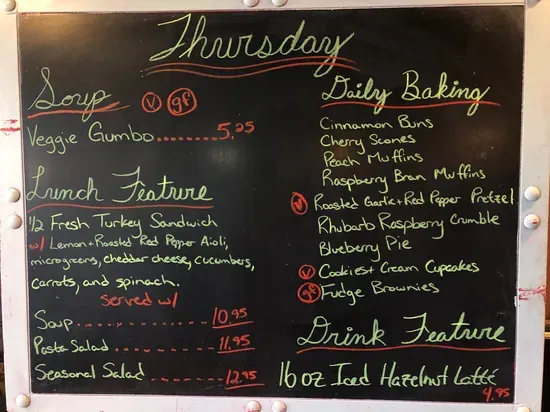 Thursday
Soup v gf
Veggie Gumbo........ 5.25
Lunch Feature
1/2 Fresh Turkey Sandwich
w/ Lemon + Roasted Red Pepper Aioli,
microgreens, cheddar cheese, cucumbers,
carrots, and spinach.
Served w/
Soup.............. 10.95
Pasta Salad......... 11.95
Seasonal Salad....... 12.95
Daily Baking
Cinnamon Buns
Cherry Scones
Peach Muffins
Raspberry Bran Muffins
v Roasted Garlic + Red Pepper Pretzel
Rhubarb Raspberry Crumble
Blueberry Pie
v Cookies + Cream Cupcakes
gf Fudge Brownies
Drink Feature
16oz Iced Hazelnut Latté
4.95